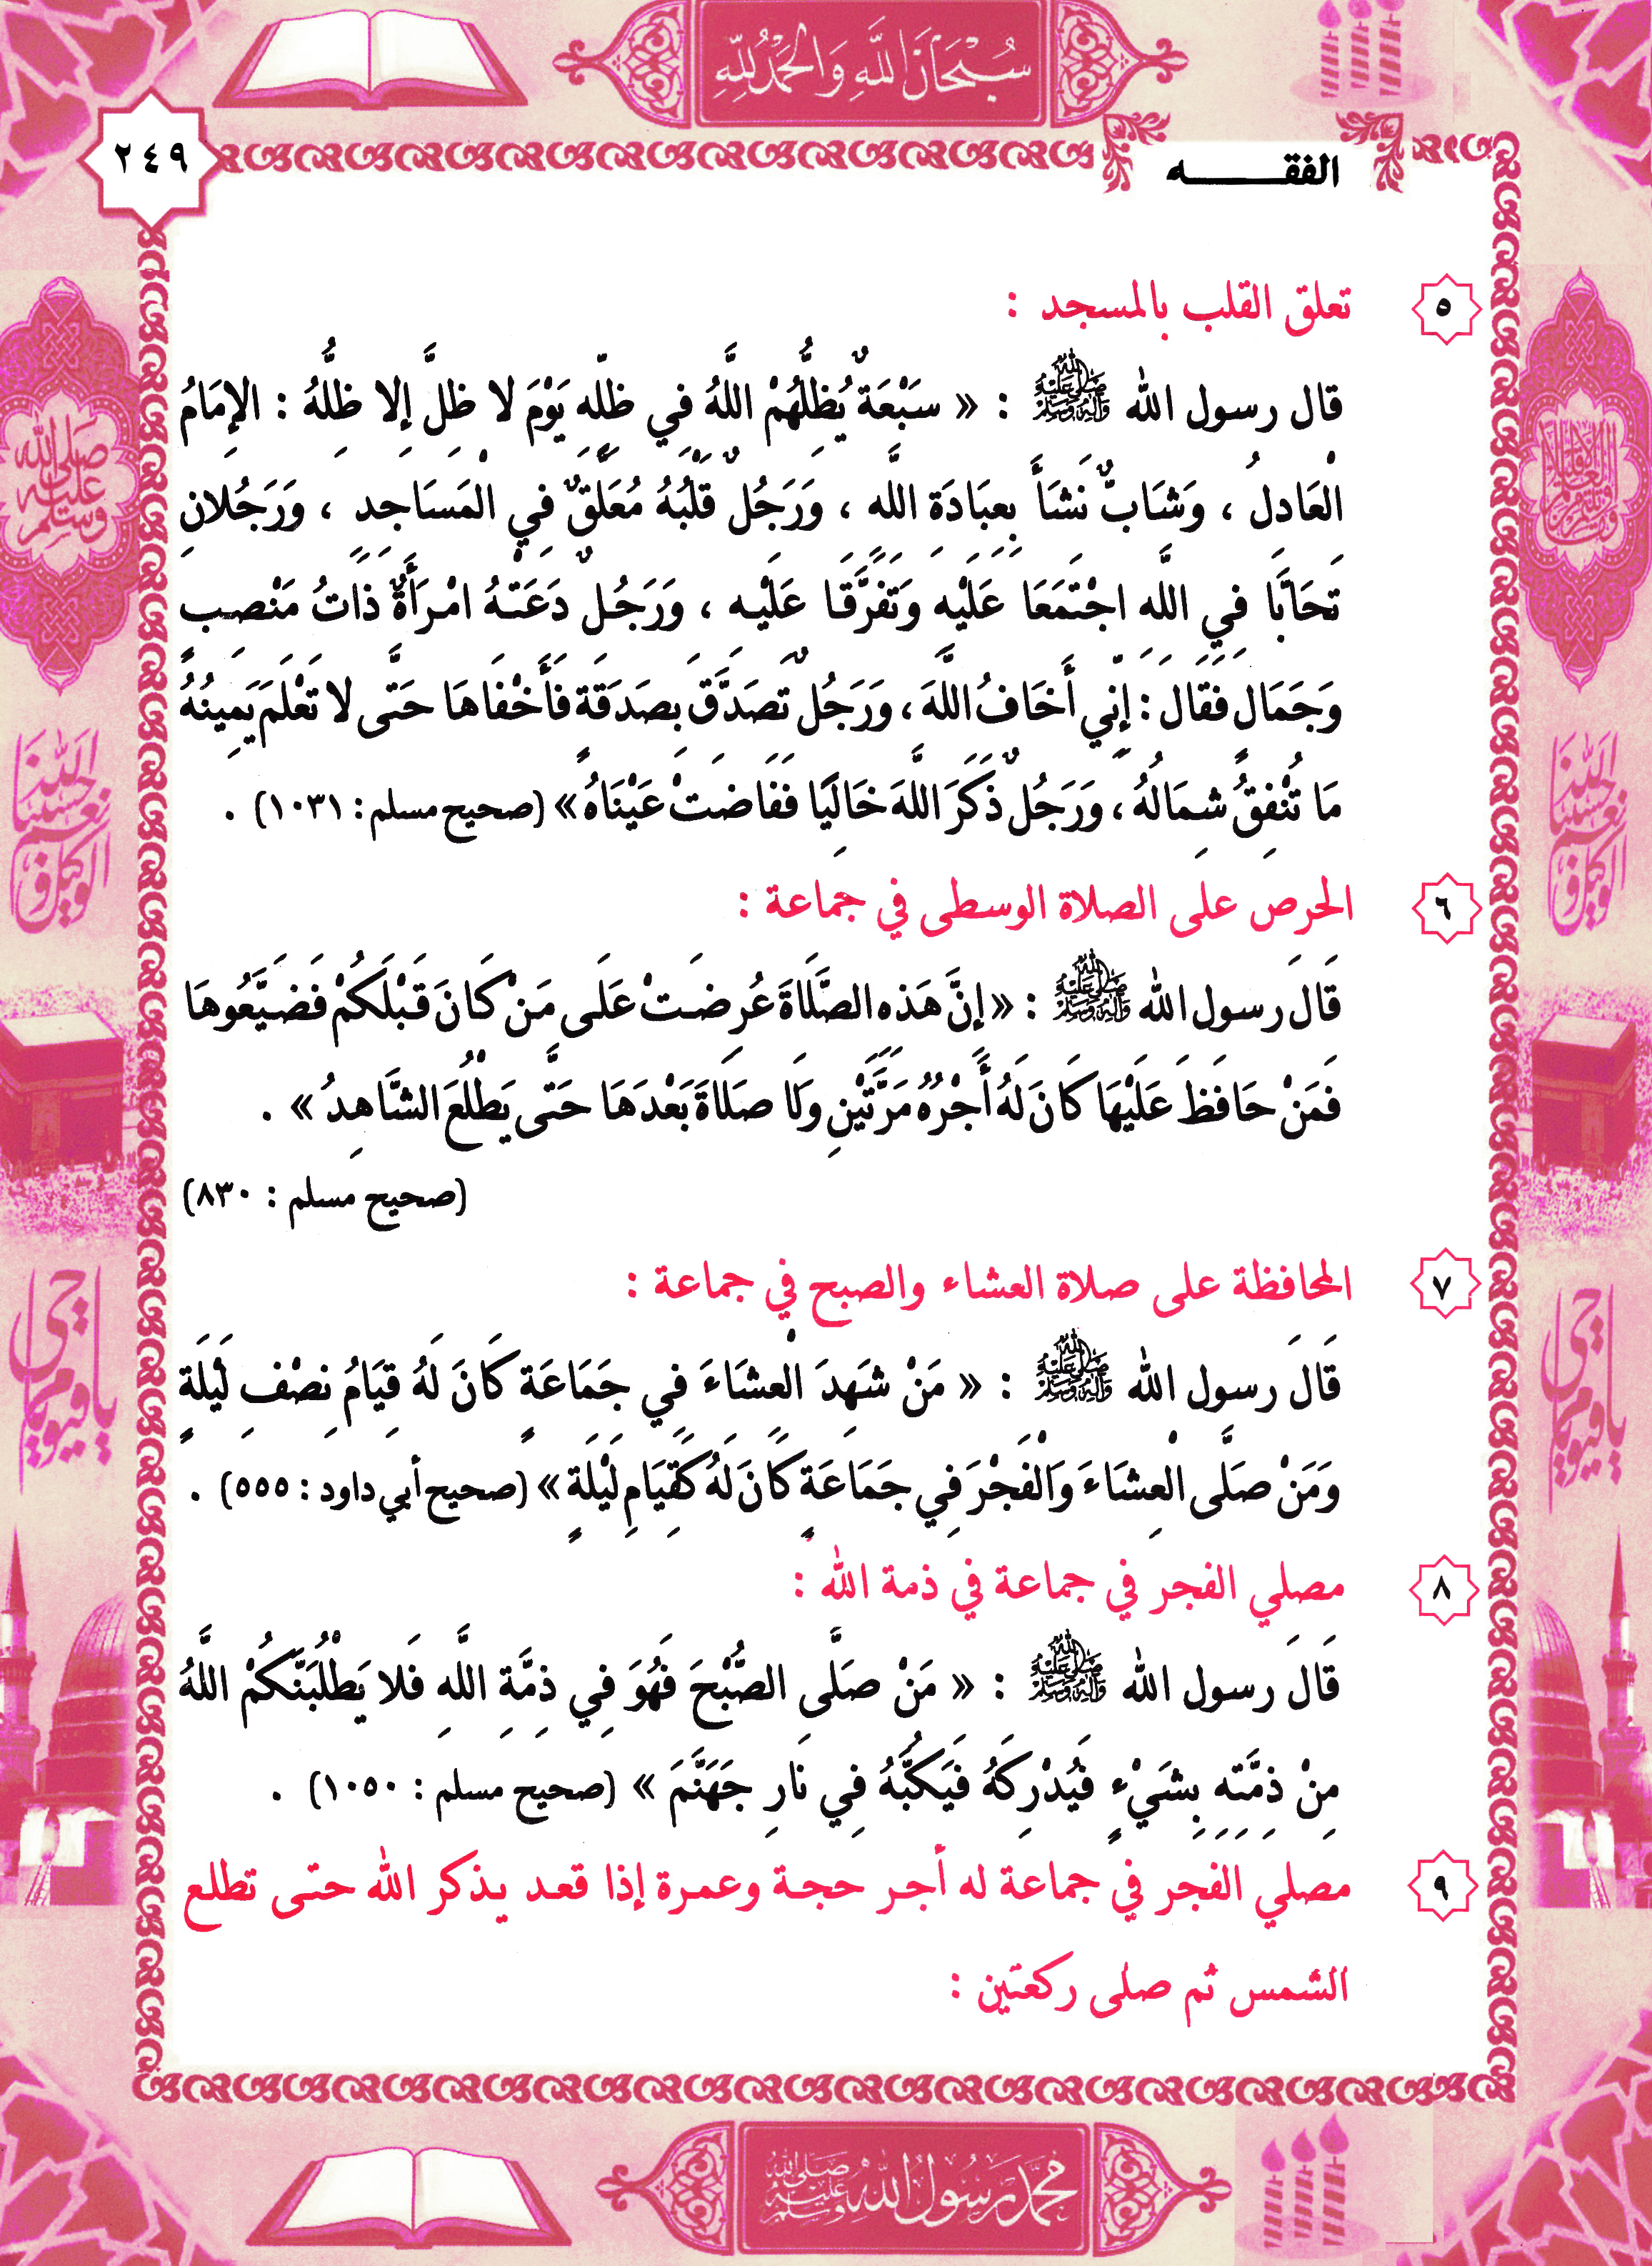 سُبْحَانَ اللَّهِ وَالْحَمْدُ لِلَّهِ
٢٤٩
الفقـــــــه
٥ تعلق القلب بالمسجد :
قال رسول الله ﷺ : « سَبْعَةٌ يُظِلُّهُمْ اللَّهُ فِي ظِلِّهِ يَوْمَ لا ظِلَّ إِلا ظِلُّهُ : الإِمَامُ
الْعَادِلُ ، وَشَابٌّ نَشَأَ بِعِبَادَةِ اللَّهِ ، وَرَجُلٌ قَلْبُهُ مُعَلَّقٌ فِي الْمَسَاجِدِ ، وَرَجُلانِ
تَحَابَّا فِي اللَّهِ اجْتَمَعَا عَلَيْهِ وَتَفَرَّقَا عَلَيْهِ ، وَرَجُلٌ دَعَتْهُ امْرَأَةٌ ذَاتُ مَنْصِبٍ
وَجَمَالٍ فَقَالَ : إِنِّي أَخَافُ اللَّهَ ، وَرَجُلٌ تَصَدَّقَ بِصَدَقَةٍ فَأَخْفَاهَا حَتَّى لا تَعْلَمَ يَمِينُهُ
مَا تُنْفِقُ شِمَالُهُ ، وَرَجُلٌ ذَكَرَ اللَّهَ خَالِيًا فَفَاضَتْ عَيْنَاهُ » (صحيح مسلم : ١٠٣١) .
٦ الحرص على الصلاة الوسطى في جماعة :
قَالَ رسول الله ﷺ : « إِنَّ هَذِهِ الصَّلَاةَ عُرِضَتْ عَلَى مَنْ كَانَ قَبْلَكُمْ فَضَيَّعُوهَا
فَمَنْ حَافَظَ عَلَيْهَا كَانَ لَهُ أَجْرُهُ مَرَّتَيْنِ وَلَا صَلَاةَ بَعْدَهَا حَتَّى يَطْلُعَ الشَّاهِدُ » .
(صحيح مسلم : ٨٣٠)
٧ المحافظة على صلاة العشاء والصبح في جماعة :
قَالَ رسول الله ﷺ : « مَنْ شَهِدَ الْعِشَاءَ فِي جَمَاعَةٍ كَانَ لَهُ قِيَامُ نِصْفِ لَيْلَةٍ
وَمَنْ صَلَّى الْعِشَاءَ وَالْفَجْرَ فِي جَمَاعَةٍ كَانَ لَهُ كَقِيَامِ لَيْلَةٍ » (صحيح أبي داود : ٥٥٥) .
٨ مصلي الفجر في جماعة في ذمة الله :
قَالَ رسول الله ﷺ : « مَنْ صَلَّى الصُّبْحَ فَهُوَ فِي ذِمَّةِ اللَّهِ فَلا يَطْلُبَنَّكُمْ اللَّهُ
مِنْ ذِمَّتِهِ بِشَيْءٍ فَيُدْرِكَهُ فَيَكُبَّهُ فِي نَارِ جَهَنَّمَ » (صحيح مسلم : ١٠٥٠) .
٩ مصلي الفجر في جماعة له أجر حجة وعمرة إذا قعد يذكر الله حتى تطلع
الشمس ثم صلى ركعتين :
محمد رسول الله صلى الله عليه وسلم
صلى الله عليه وسلم
حسبنا الله ونعم الوكيل
حسبنا الله ونعم الوكيل
يا حي يا قيوم
يا حي يا قيوم